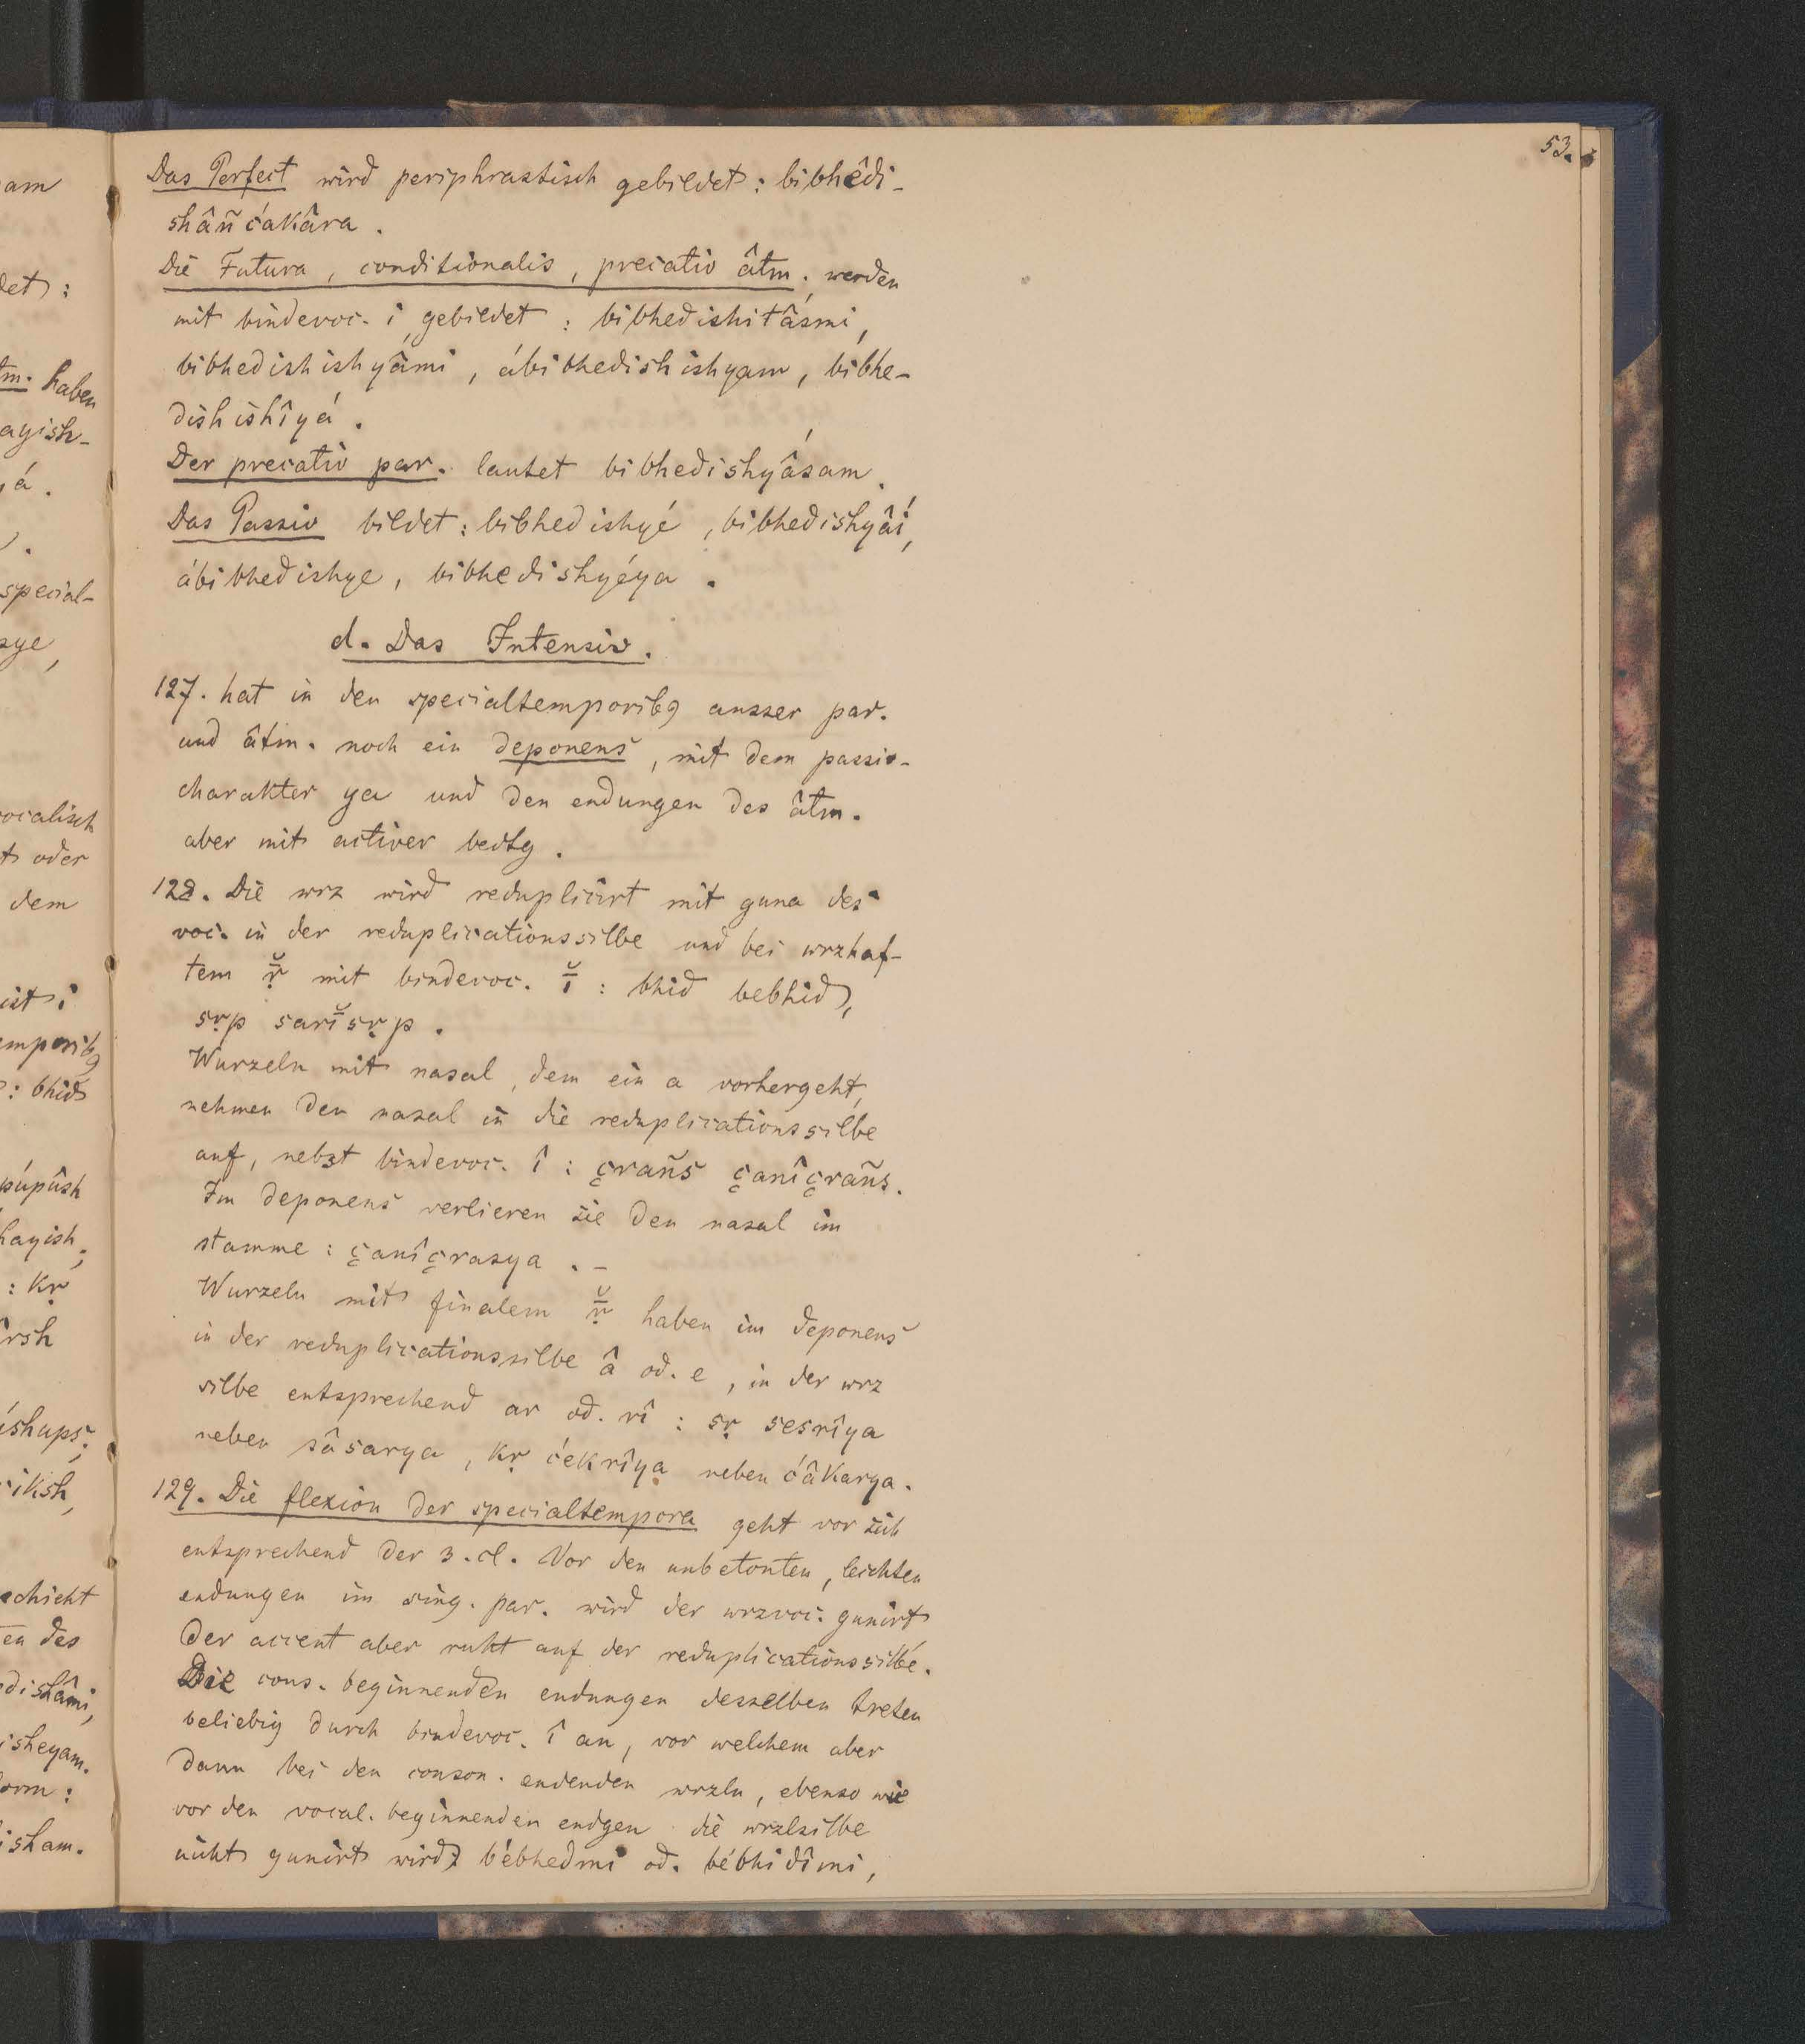 53.
Das Perfect wird periphrastisch gebildet: bibhêdi-
shâñćakâra.
Die Futura, conditionalis, precativ âtm. werden
mit bindevoc. i gebildet: bibhedishitấsmi,
bibhedishishyâmi, ábibhedishishyam, bibhe-
dishishîyá.
Der precativ par. lautet bibhedishyấsam.
Das Passiv bildet: bibhedishyé, bibhedishyâí,
ábibhedishye, bibhedishyéya.
d. Das Intensiv.
127. hat in den specialtemporibꝰ ausser par.
und âtm. noch ein deponens, mit dem passiv-
charakter ya und den endungen des âtm.
aber mit activer bedtg.
128. Die wrz wird reduplicirt mit guna des
voc. in der reduplicationssilbe und bei wrzhaf-
tem ṝ̆ mit bindevoc. ī̆: bhid bebhid,
sṛp sarī̆sṛp.
Wurzeln mit nasal, dem ein a vorhergeht,
nehmen den nasal in die reduplicationssilbe
auf, nebst bindevoc. î: çrañs çanîçrañs.
Im deponens verlieren sie den nasal im
stamme: çanîçrasya. -
Wurzeln mit finalem ṝ̆ haben im deponens
in der reduplicationssilbe â od. e, in der wrz
silbe entsprechend ar od. rî: sṛ sesrîya
neben sâsarya, kṛ ćekrîya neben ćâkarya.
129. Die flexion der specialtempora geht vor sich
entsprechend der 3. cl. Vor den unbetonten, leichten
endungen im sing. par. wird der wrzvoc. gunirt
der accent aber ruht auf der reduplicationssilbe.
Die cons. beginnenden endungen desselben treten
beliebig durch bindevoc. î an, vor welchem aber
dann bei den conson. endenden wrzln, ebenso wie
vor den vocal. beginnenden endgen die wrzlsilbe
nicht gunirt wird: bébhedmi od. bébhidîmi,